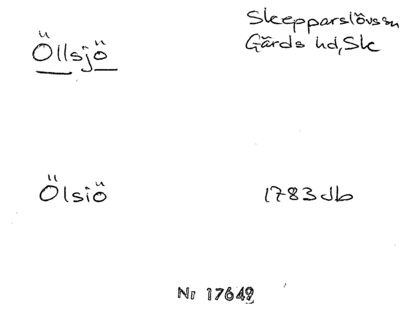 Öllsjö
Skepparslövssn
Gärds hd, Sk
Ölsiö
1783 Jb
Nr 17649